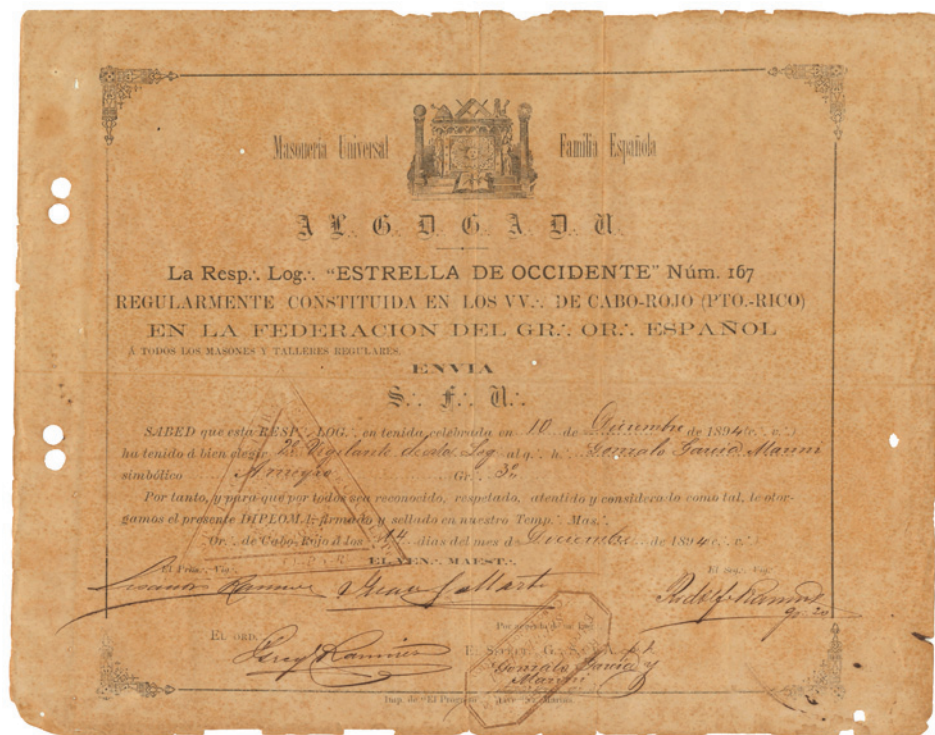 Masonería Universal
Familia Española
A L. G. D. G. A. D. U.
La Resp.·. Log.·. "ESTRELLA DE OCCIDENTE" Núm. 167
REGULARMENTE CONSTITUIDA EN LOS VV.·. DE CABO-ROJO (PTO.-RICO)
EN LA FEDERACION DEL GR.·. OR.·. ESPAÑOL
Á TODOS LOS MASONES Y TALLERES REGULARES
ENVIA
S.·. F.·. U.·.
SABED que esta RESP.·. LOG.·. en tenida celebrada en 10 de Diciembre de 1894 (e.·. v.·.)
ha tenido á bien elegir 2º Vigilante de esta Log al q.·. h.·. Gonzalo García Marini
simbólico Gr.·. 3º
Por tanto, y para que por todos sea reconocido, respetado, atentido y considerado como tal, le otor-
gamos el presente DIPLOMA, firmado y sellado en nuestro Temp.·. Mas.·.
Or.·. de Cabo-Rojo á los 14 dias del mes de Diciembre de 1894 (e.·. v.·.)
EL VEN.·. MAEST.·.
El Prim.·. Vig.·.
El Seg.·. Vig.·.
Ramirez
EL ORD.
Por
Ramirez
G.·. S.·.
Gonzalo García y
Marini
Imp. de "El